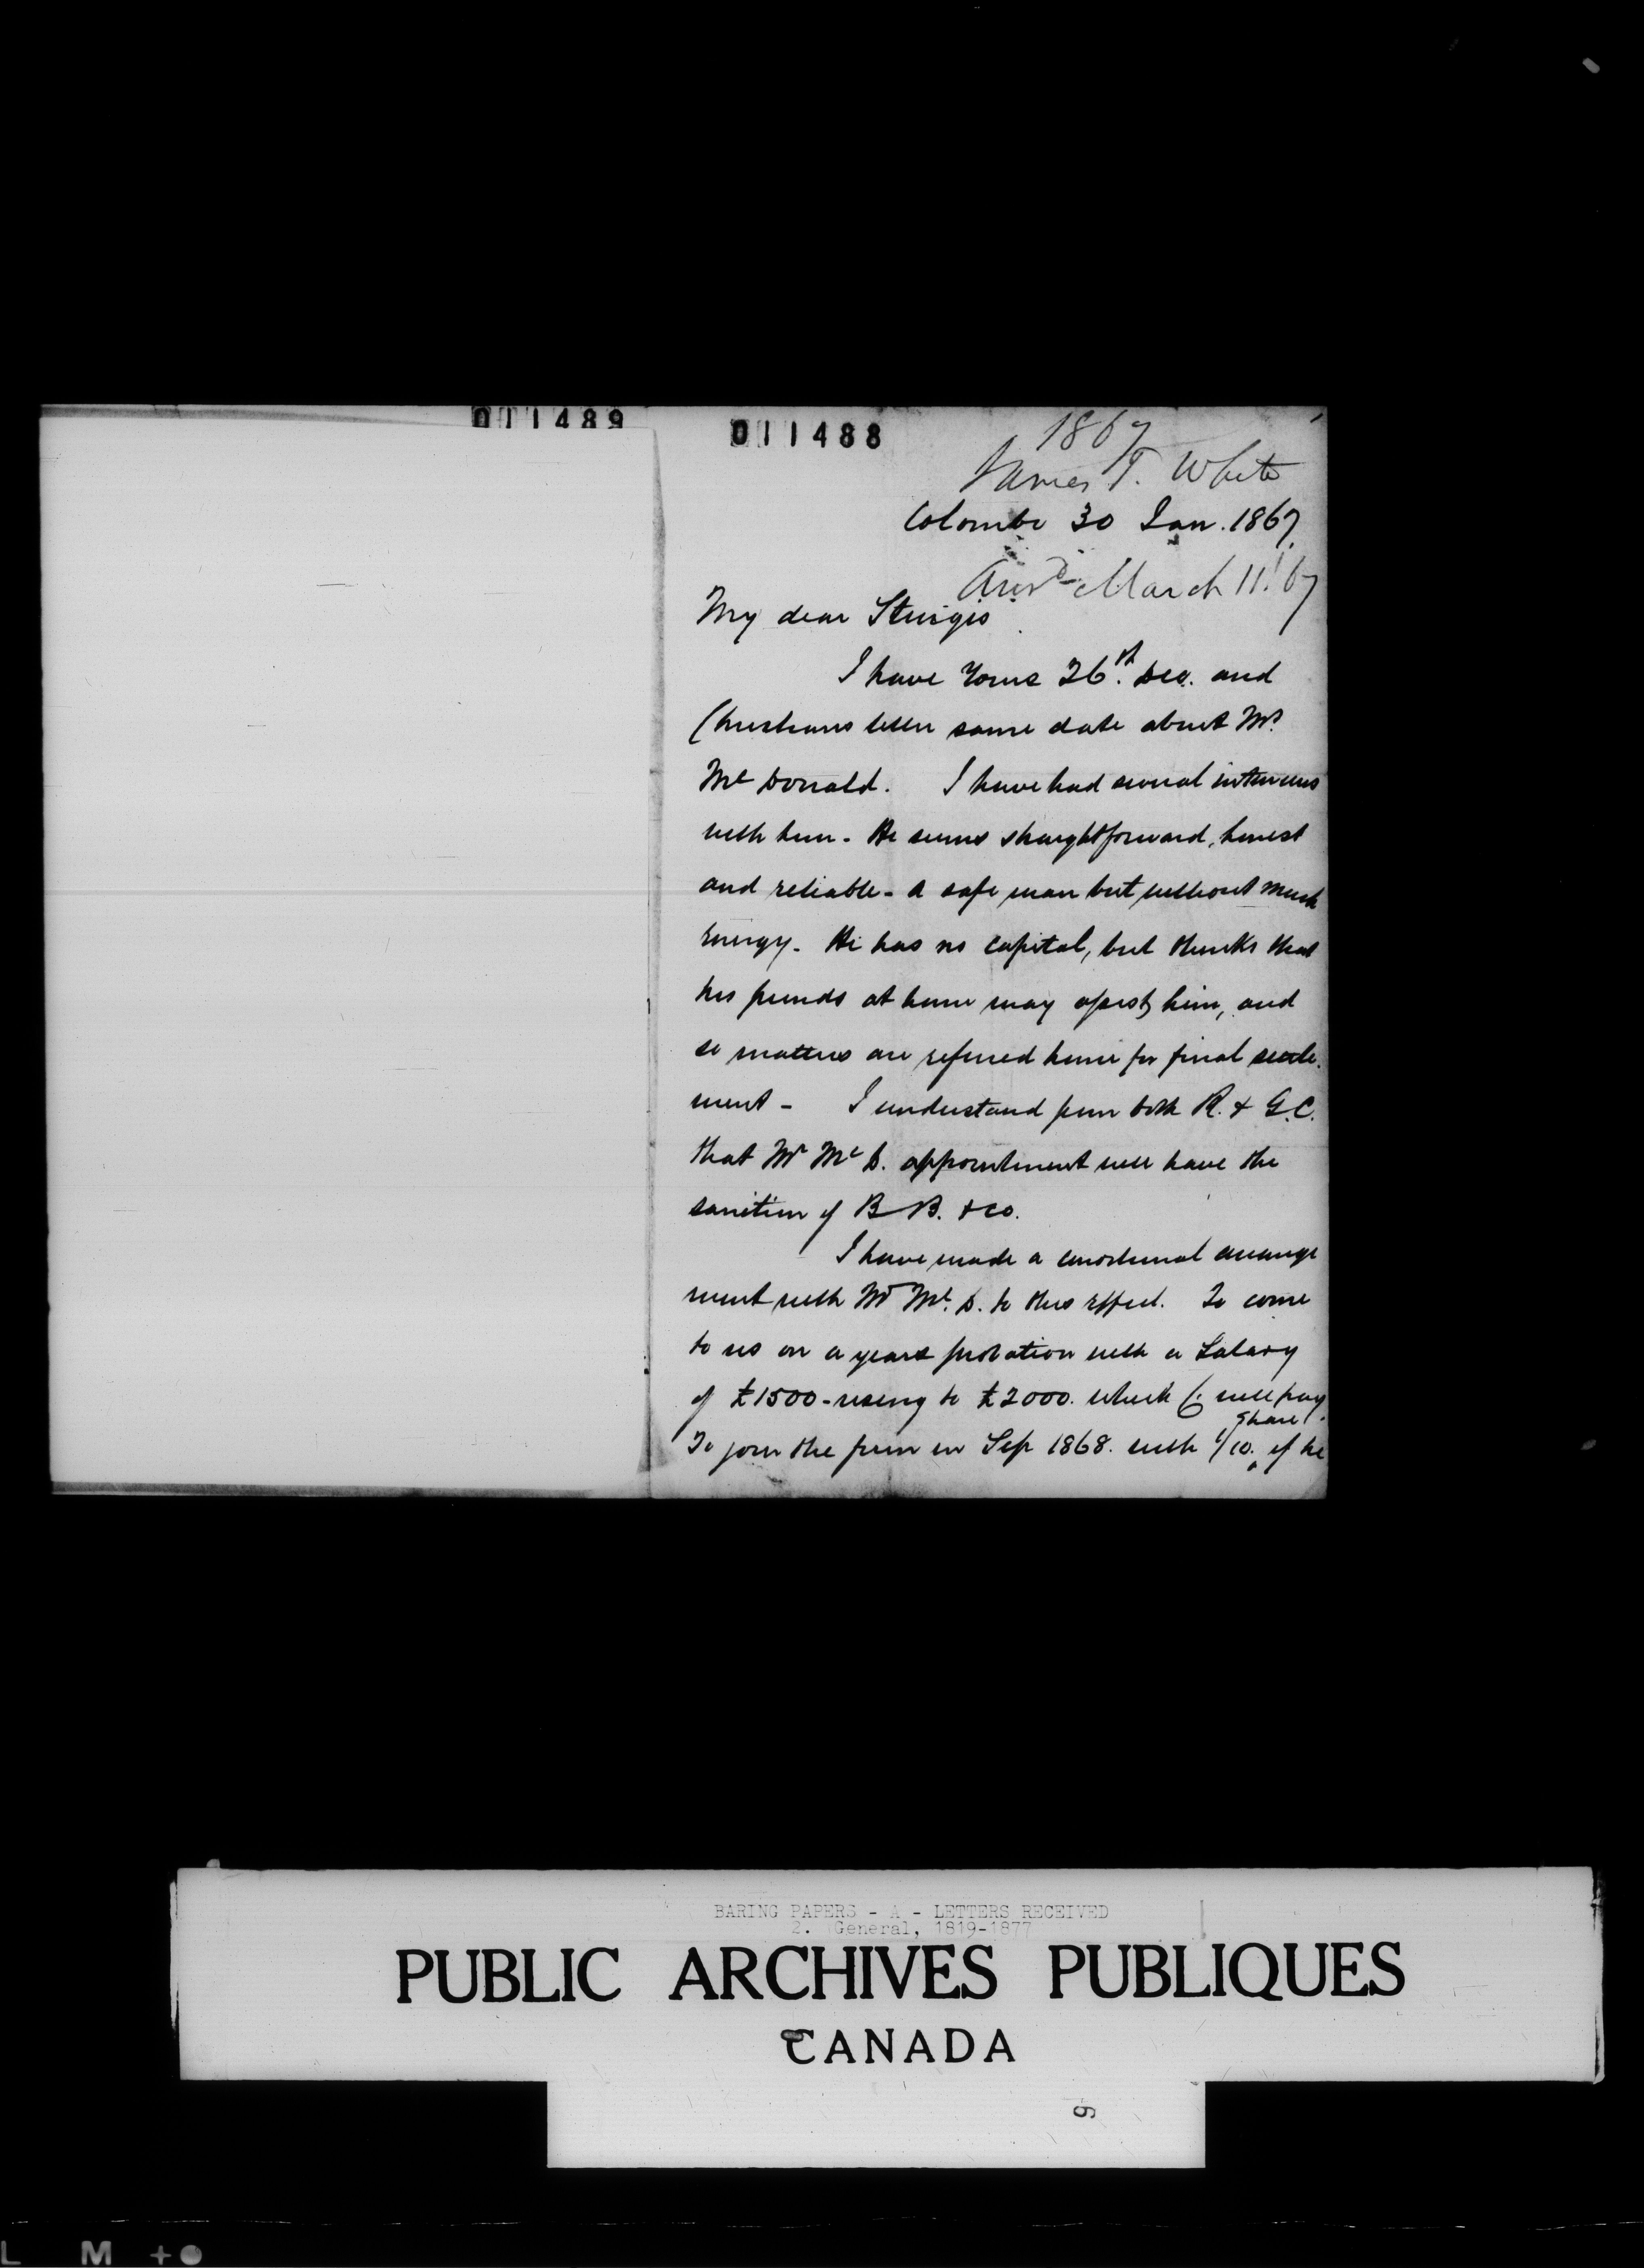 011489
011488
1867
James T. White
Colombo 30 Jan. 1867.
Answd March 11! 67
My dear Sturgis
I have Yours 26th. Dec. and
Crustians letter same date about Mr.
Mc Donald. I have had several interviews
with him - He seems straightforward, honest
and reliable - a safe man but without much
energy. He has no capital, but thinks that
his friends at home may assist him, and
so matters are referred home for final settle.
ment - I understand from both R. & G.C.
that Mr Mc D. appointment will have the
sanction of B B. & Co.
I have made a conditional arrange
ment with Mr Mc. D. to this effect. To come
to us on a years probation with a Salary
of £1500 - rising to £2000. which will pay.
To join the firm in Sep 1868. with 1/10. share if he
BARING PAPERS - A - LETTERS RECEIVED
2. General, 1819-1877
PUBLIC ARCHIVES PUBLIQUES
CANADA
9
L M +